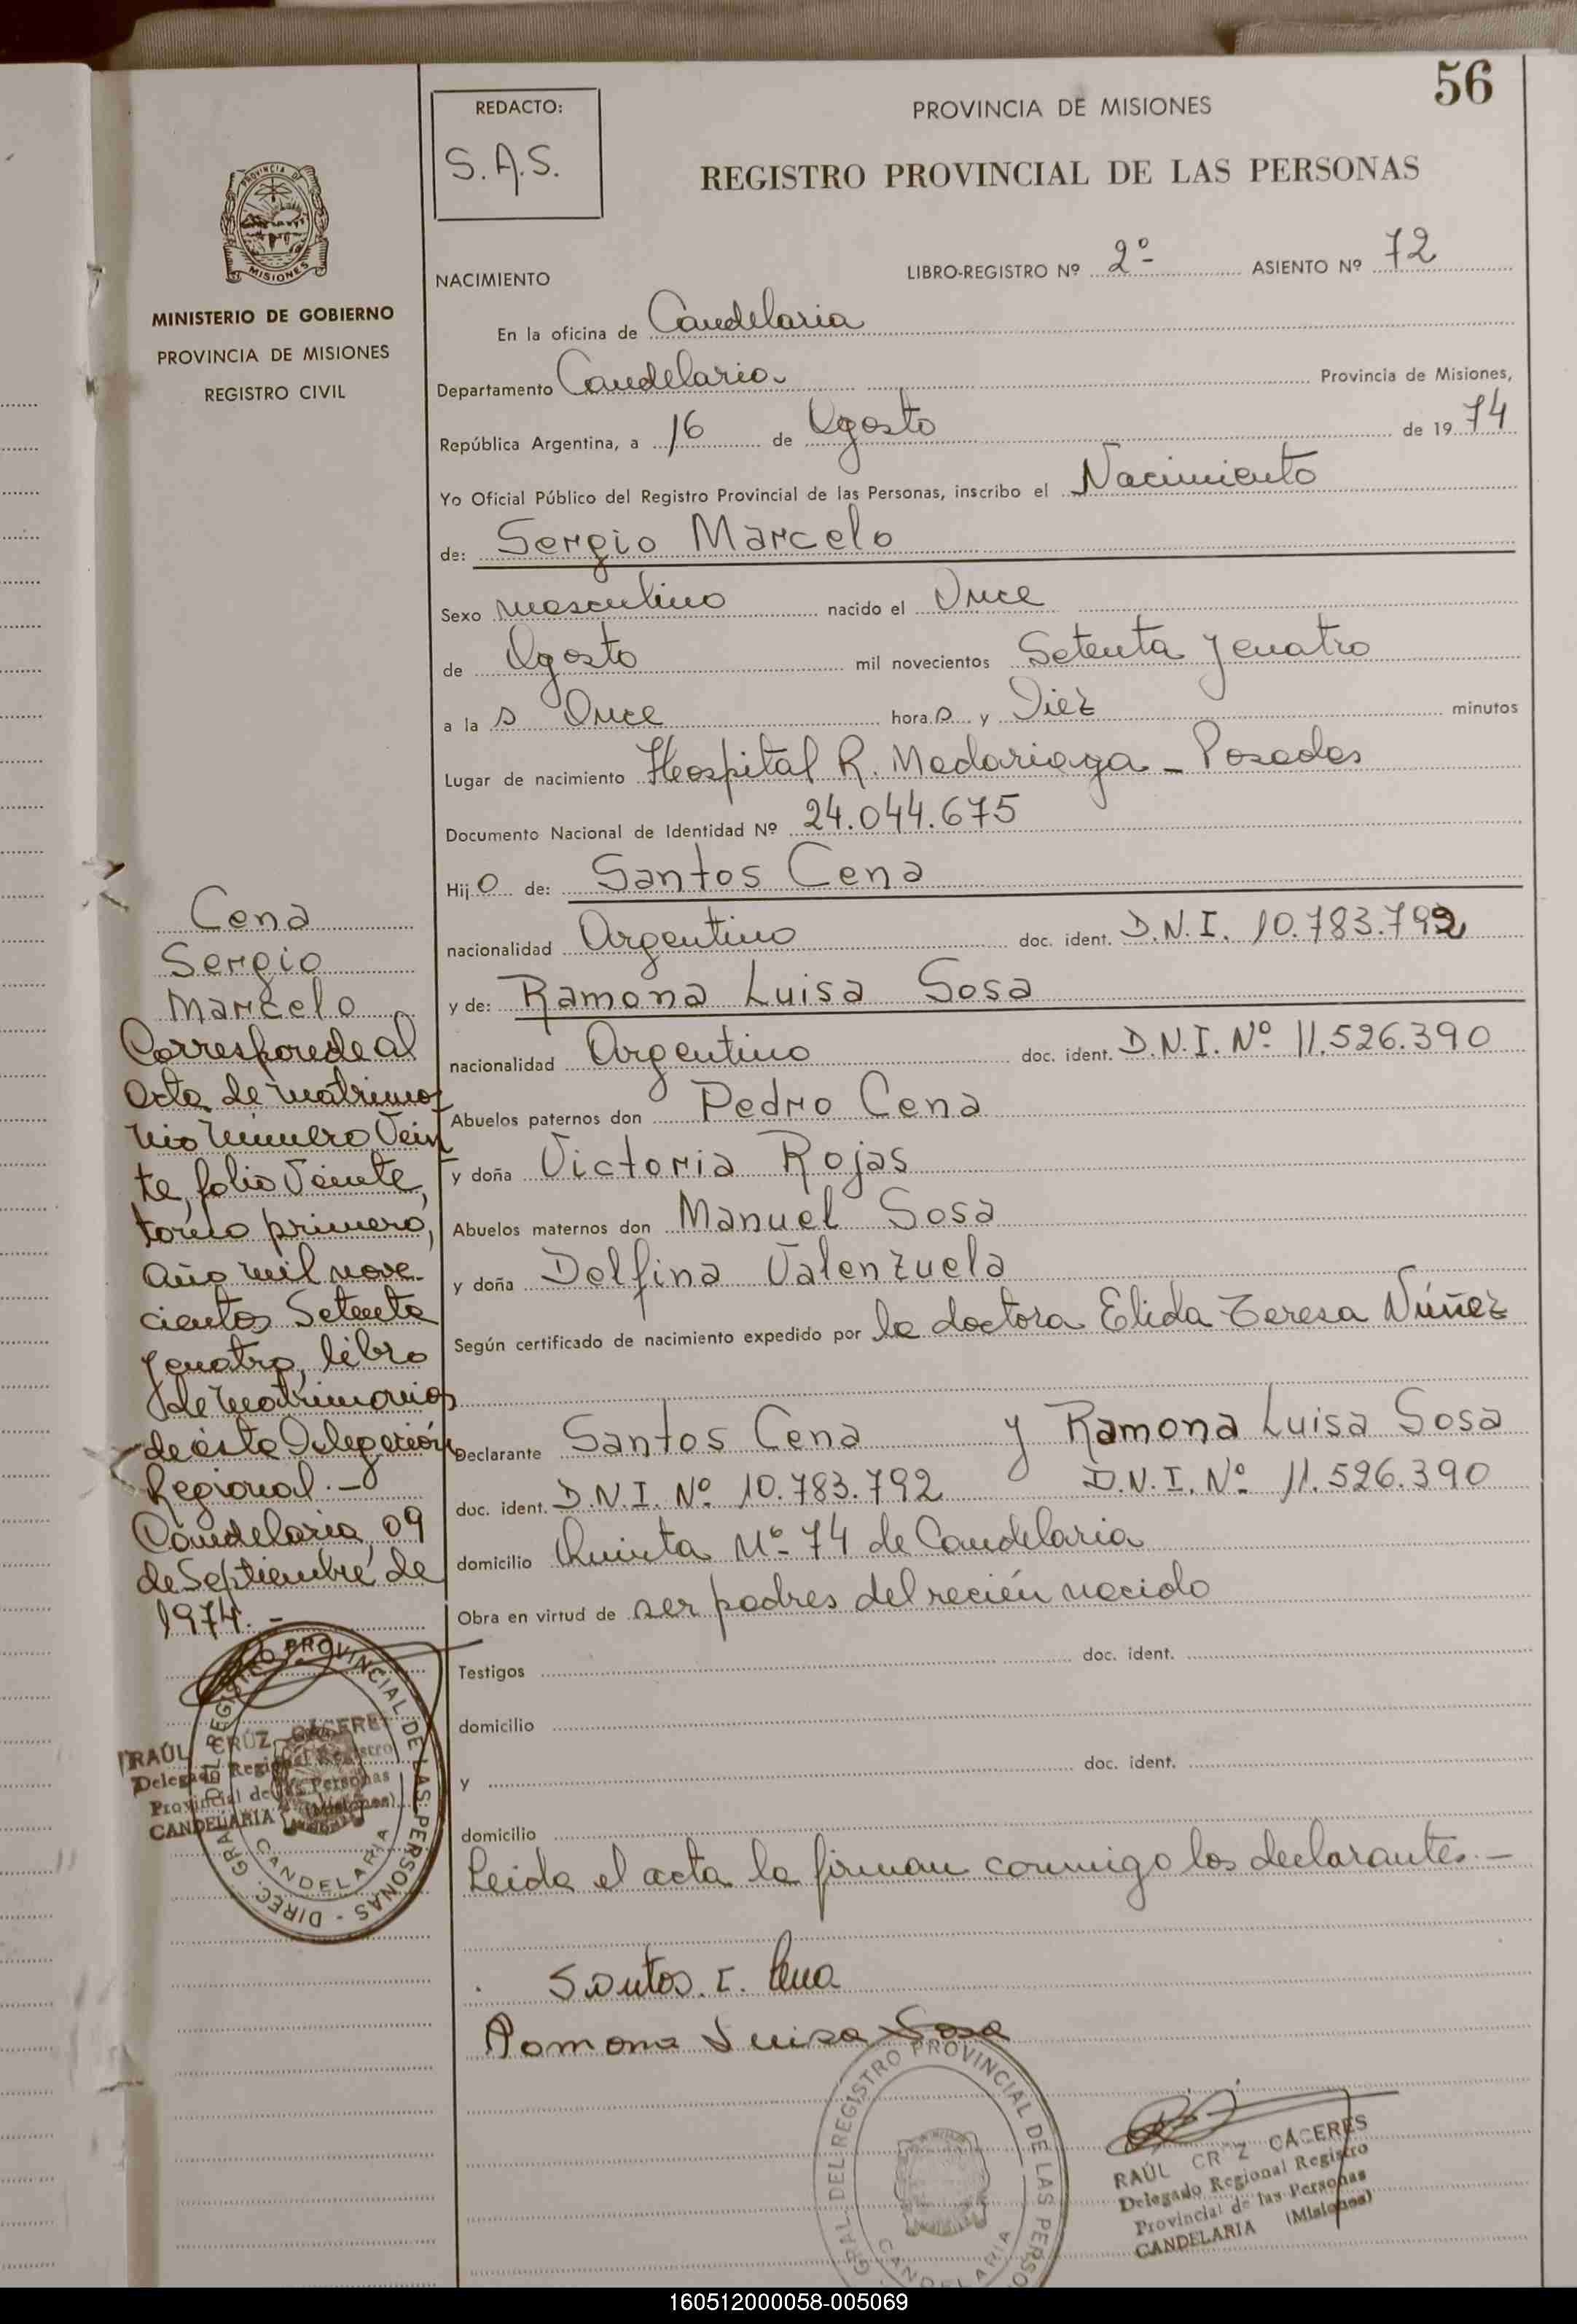 56
REDACTO:
S.A.S.
PROVINCIA DE MISIONES
REGISTRO PROVINCIAL DE LAS PERSONAS
PROVINCIA DE
MISIONES
MINISTERIO DE GOBIERNO
PROVINCIA DE MISIONES
REGISTRO CIVIL
NACIMIENTO LIBRO-REGISTRO Nº 2º- ASIENTO Nº 72
En la oficina de Candelaria
Departamento Candelaria Provincia de Misiones,
República Argentina, a 16 de Agosto de 1974
Yo Oficial Público del Registro Provincial de las Personas, inscribo el Nacimiento
de: Sergio Marcelo
Sexo masculino nacido el Once
de Agosto mil novecientos Setenta y cuatro
a las Once horas y Diez minutos
Lugar de nacimiento Hospital R. Madariaga - Posadas
Documento Nacional de Identidad Nº 24.044.675
Hijo de: Santos Cena
nacionalidad Argentino doc. ident. D.N.I. 10.783.792
y de: Ramona Luisa Sosa
nacionalidad Argentino doc. ident. D.N.I. Nº 11.526.390
Abuelos paternos don Pedro Cena
y doña Victoria Rojas
Abuelos maternos don Manuel Sosa
y doña Delfina Valenzuela
Según certificado de nacimiento expedido por la doctora Elida Teresa Núñez
Declarante Santos Cena y Ramona Luisa Sosa
doc. ident. D.N.I. Nº 10.783.792 D.N.I. Nº 11.526.390
domicilio Quinta Nº 74 de Candelaria
Obra en virtud de ser padres del recién nacido
Testigos doc. ident.
domicilio
y doc. ident.
domicilio
Leida el acta la firman conmigo los declarantes.-
Santos. I. Cena
Ramona Luisa Sosa
Cena
Sergio
Marcelo
Corresponde al
acta de matrimo
nio número Vein
te, folio Veinte,
tomo primero,
año mil nove-
cientos Setenta
y cuatro, libro
de matrimonios
de ésta Delegación
Regional.-
Candelaria, 09
de Septiembre de
1974.-
DIREC. GRAL. DEL REGISTRO PROVINCIAL DE LAS PERSONAS -
CANDELARIA
RAÚL CRUZ CÁCERES
Delegado Regional Registro
Provincial de las Personas
CANDELARIA (Misiones)
GRAL. DEL REGISTRO PROVINCIAL DE LAS PERSO
CANDELARIA
RAÚL CR Z CÁCERES
Delegado Regional Registro
Provincial de las Personas
CANDELARIA (Misiones)
160512000058-005069